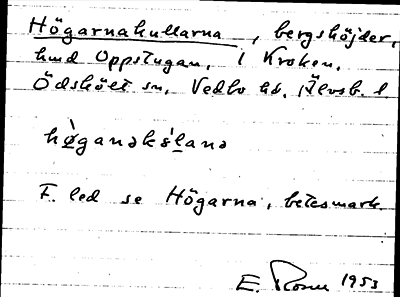 Högarnakullarna, bergshöjder,
hmd Oppstugan, i Kroken.
Ödskölt sn, Vedbo hd, Älvsb. l
hø̀ganəkśḷanə
F. led se Högarna, betesmark.
E. 1953